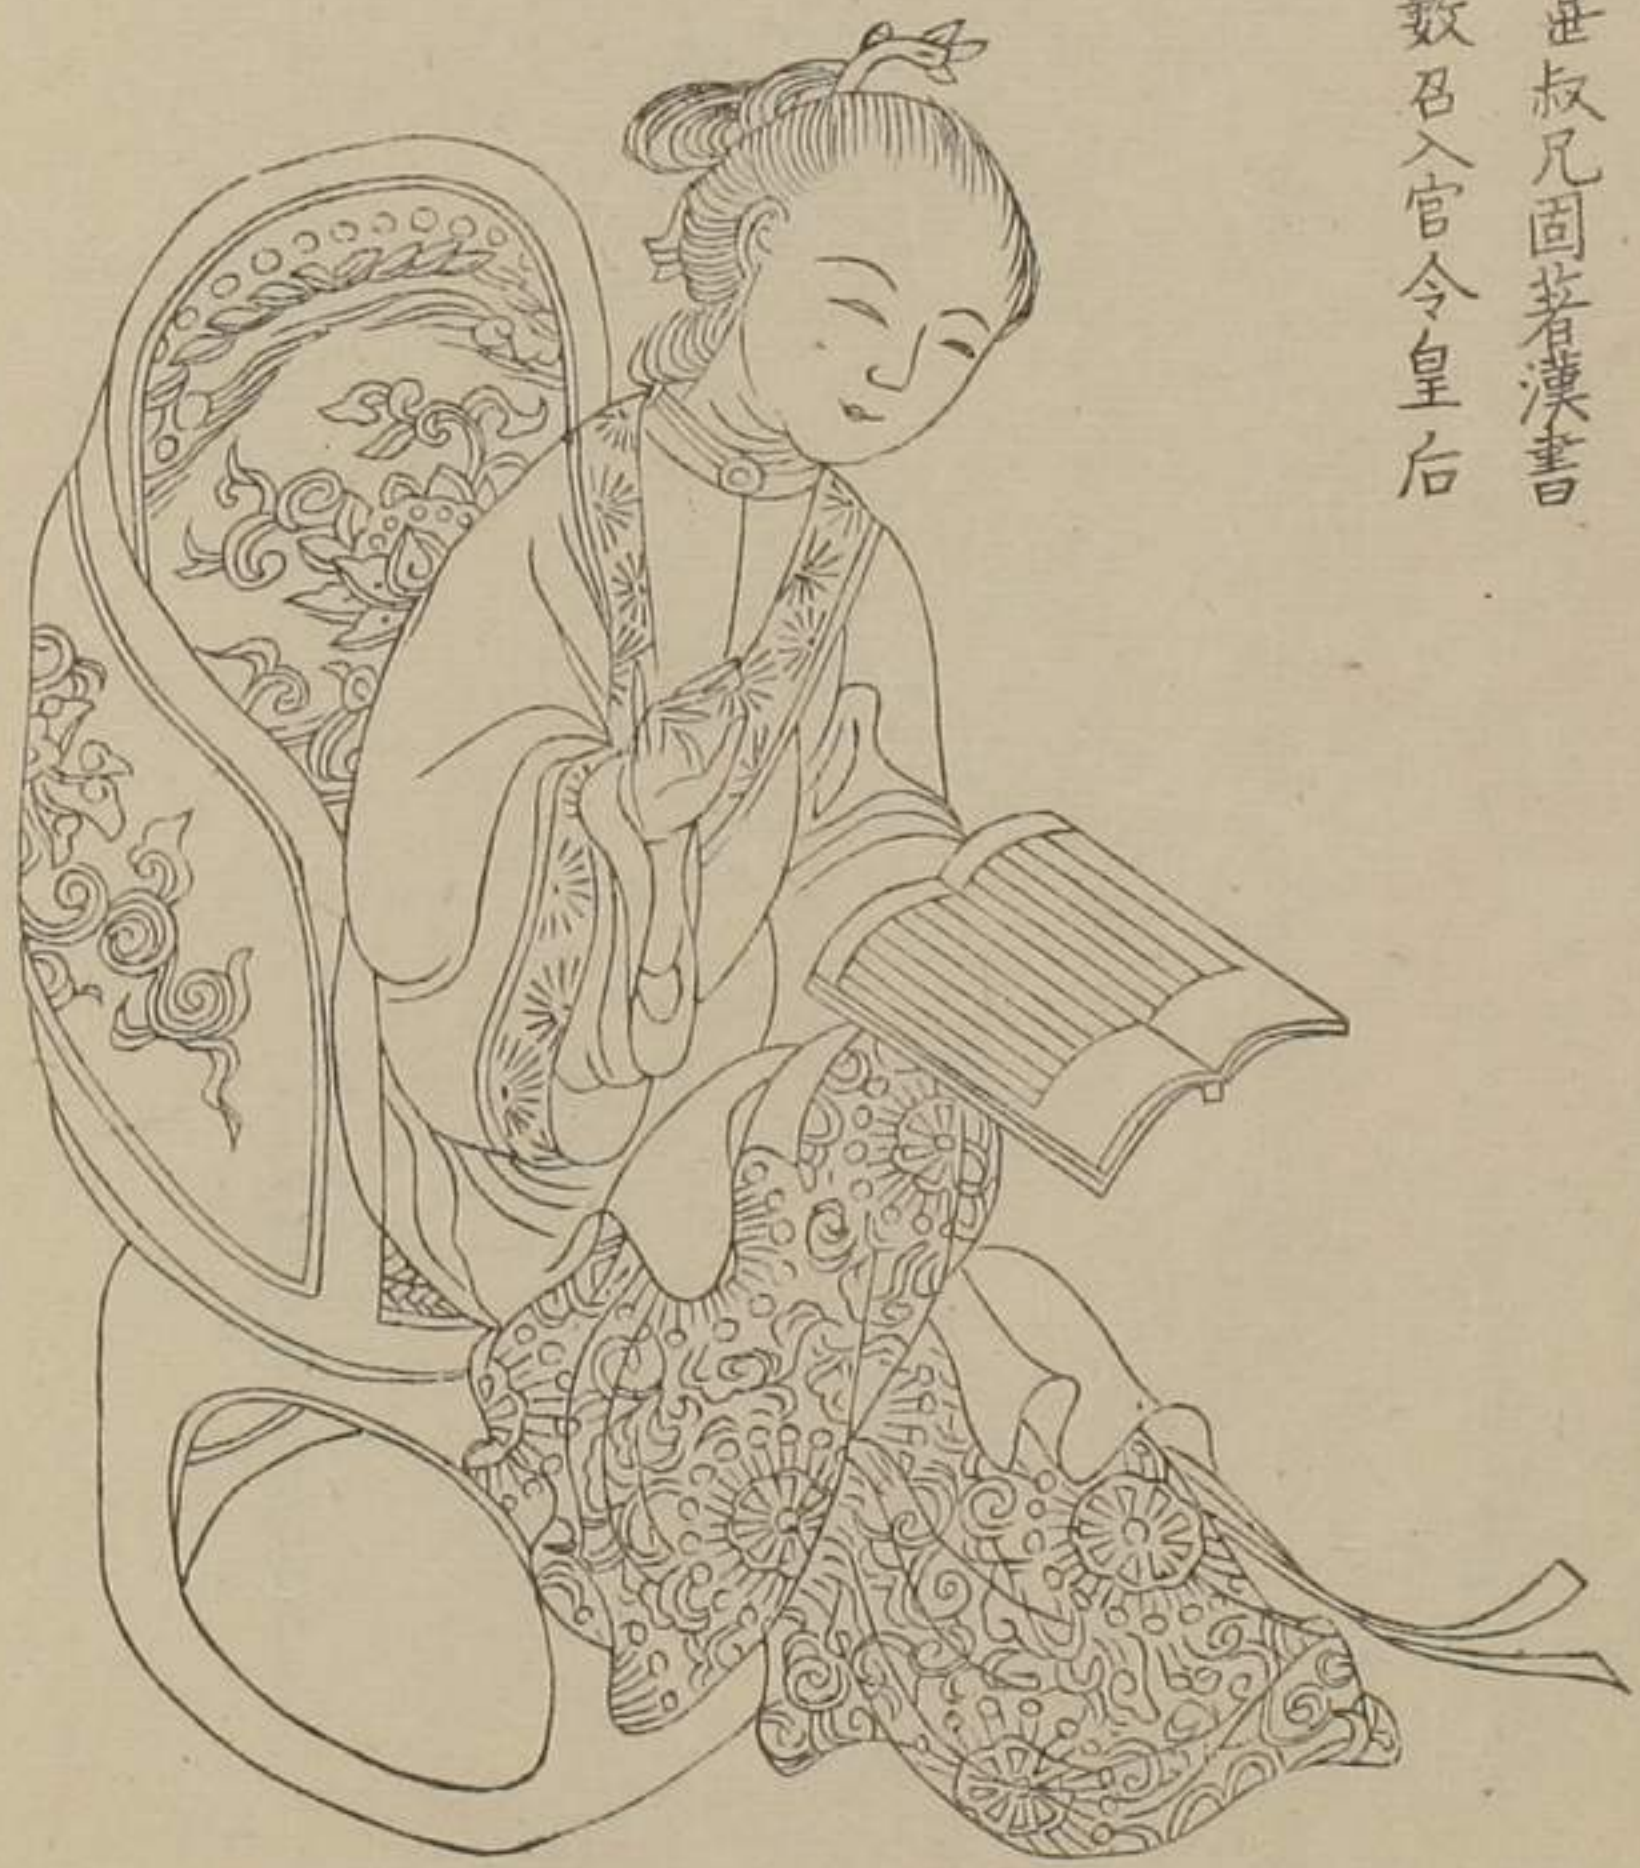 世叔兄固著漢書
數召入官令皇后